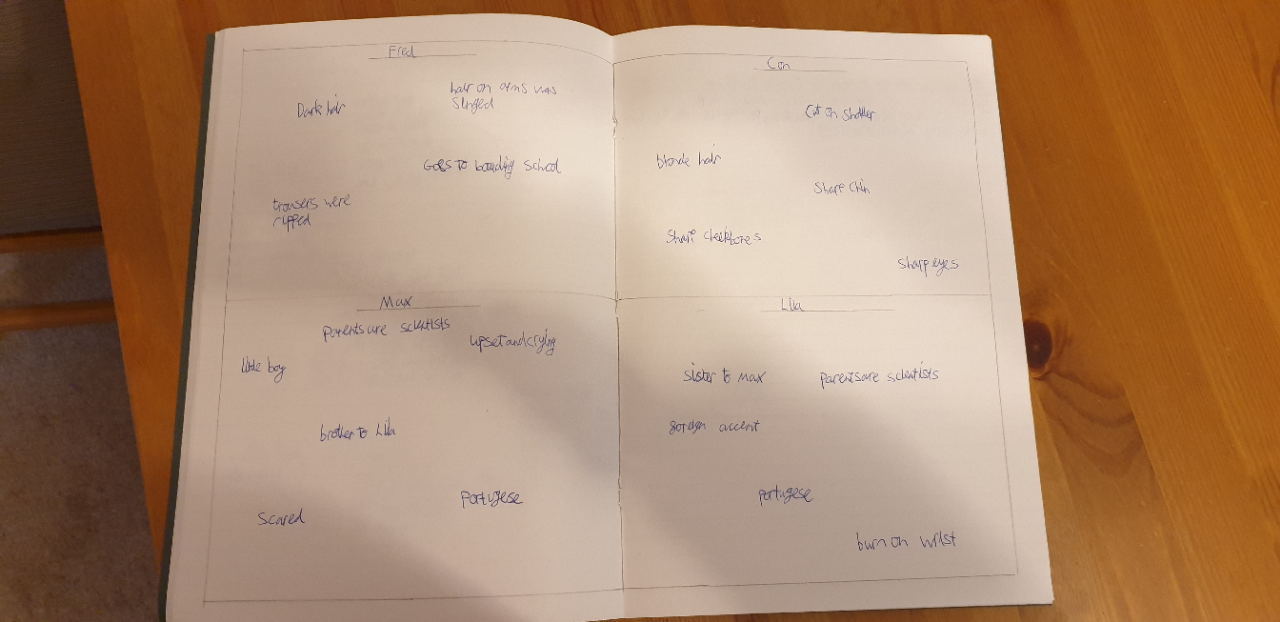 Fred
Dark hair
hair on arms was
singed
Goes to boarding school
trousers were
ripped
Con
Cut on sholder
blonde hair
Sharp chin
Sharp cheekbones
sharp eyes
Max
Parents are scientists
upset and crying
little boy
brother to Lila
Portugese
Scared
Lila
sister to Max
parents are scientists
foreign accent
portugese
burn on wrist